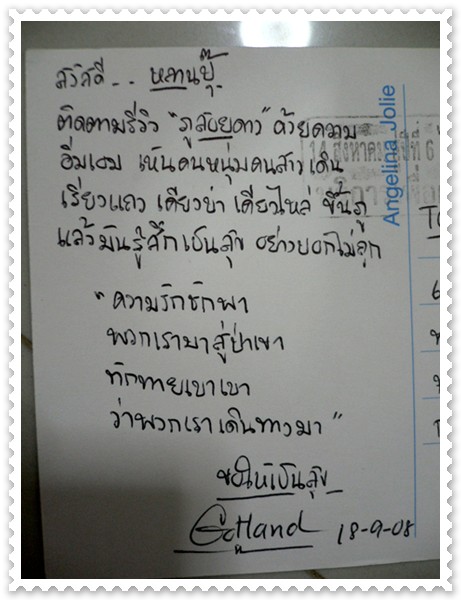 สวัสดี... หลานปุ๊
ติดตามรีวิว "ภูสอยดาว" ด้วยความ
อิ่มเอม เห็นคนหนุ่มคนสาวเดิน
เรียงแถว เคียงบ่า เคียงไหล่ ขึ้นภู
แล้วมันรู้สึกเป็นสุข อย่างบอกไม่ถูก
"ความรักชักพา
พวกเรามาสู่ป่าเขา
ทักทายเบาเบา
ว่าพวกเราเดินทางมา"
ขอให้เป็นสุข
18-9-08
Angelina Jolie
14 สิงหาคม